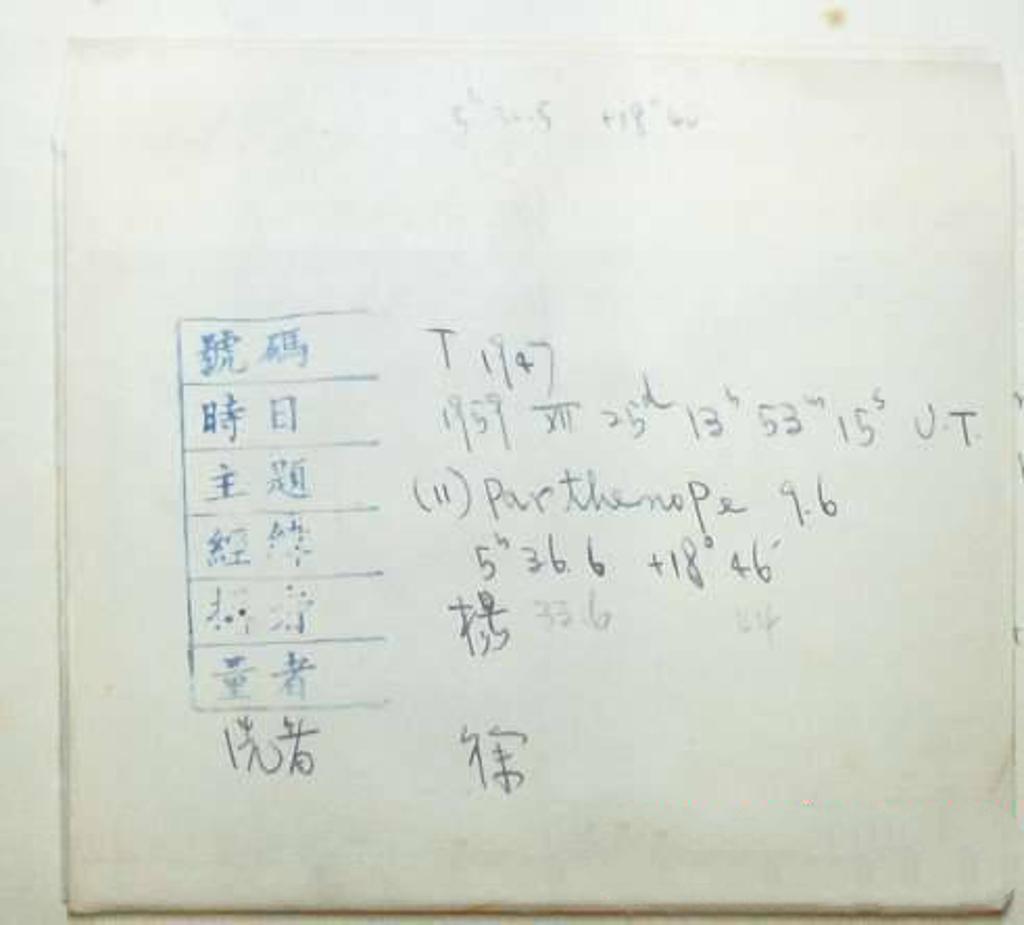 +18°
號碼 T 1947
時日 1959 XII 25d 13h 53m 15s U.T.
主題 (11) Parthenope 9.6
經緯 5h 36.6 +18° 46'
楊 33.6
量者
洗者 徐